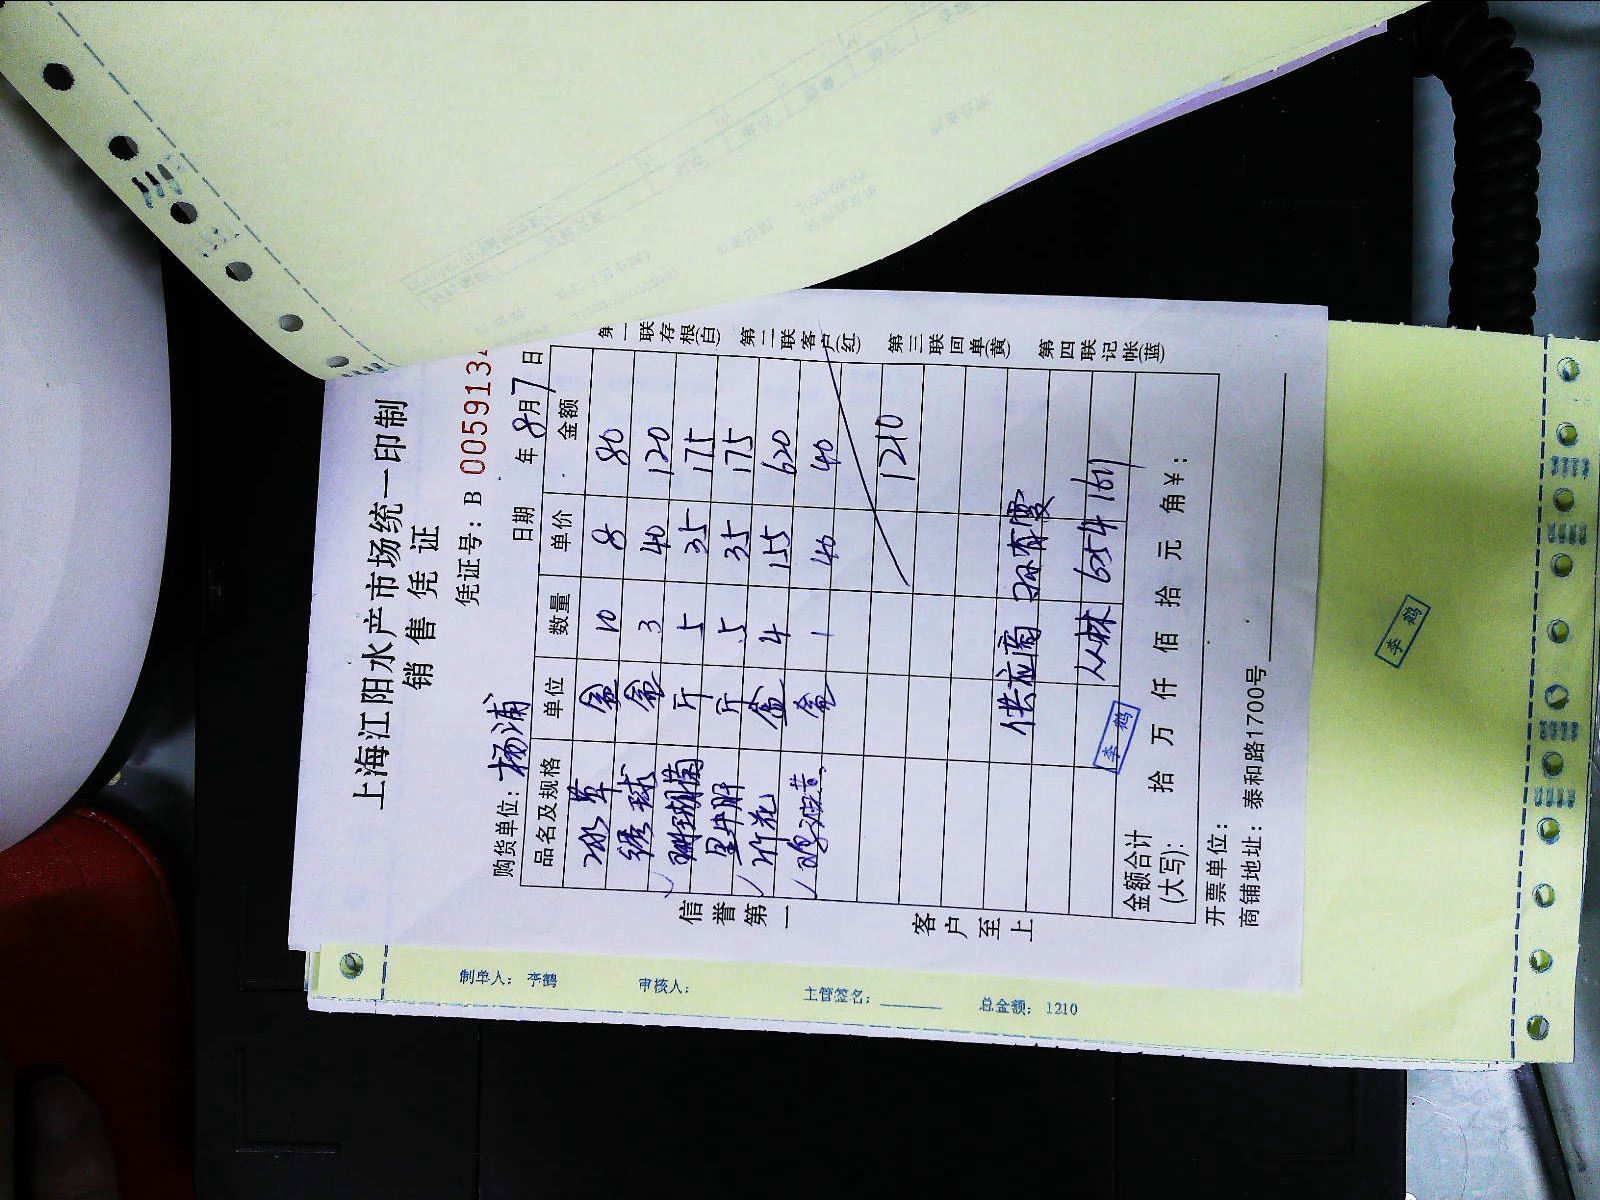 上海江阳水产市场统一印制
销 售 凭 证
凭证号：B 0059134
购货单位：杨浦 日期 年 8月7日
品名及规格 单位 数量 单价 金额
冰草 盒 10 8 80
绣球 盒 3 40 120
珊瑚菌 斤 5 35 175
斤 5 35 175
竹花 盒 4 155 620
盒 1 40 40
1210
供应商 孙有雯
丛林 6541611
李鹤
金额合计
(大写)： 拾 万 仟 佰 拾 元 角￥：
开票单位：
商铺地址：泰和路1700号
信誉第一
客户至上
第一联存根(白)
第二联客户(红)
第三联回单(黄)
第四联记帐(蓝)
制单人：李鹤 审核人： 主管签名： 总金额：1210
李鹤